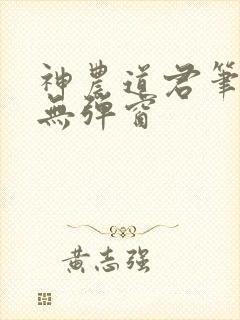 神農道君筆
無彈窗
黃志强